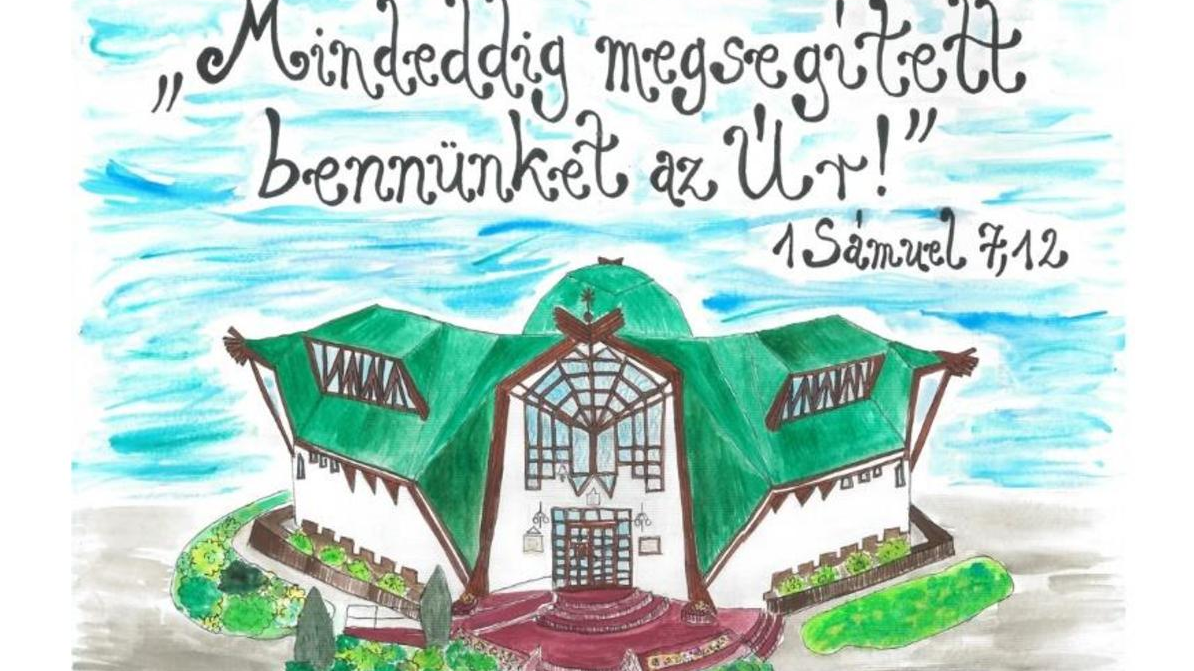 „Mindeddig megsegített
bennünket az Úr!”
1 Sámuel 7,12